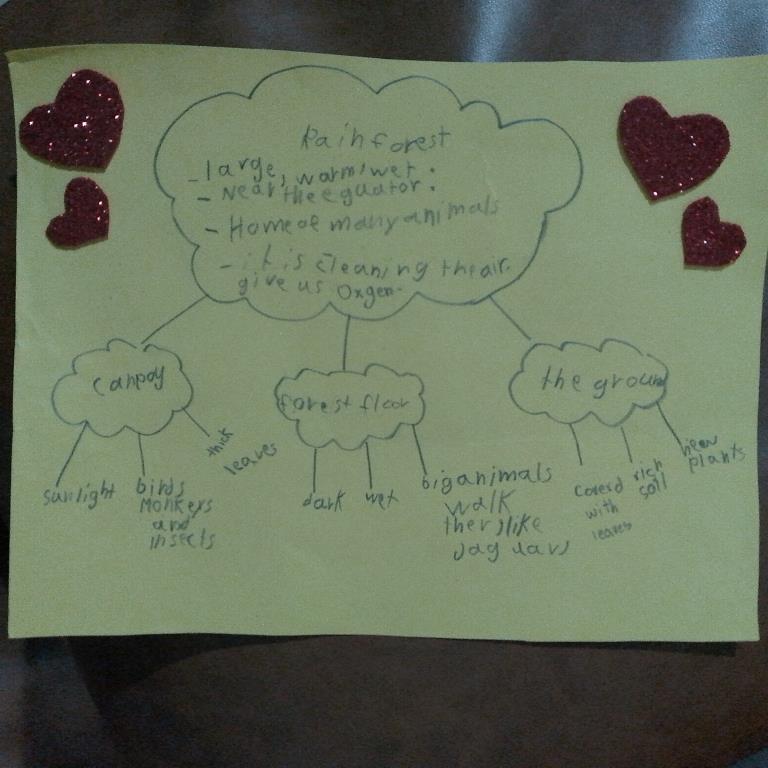 Rainforest
- large, warm, wet.
- Near the equator.
- Home of many animals
- it is cleaning the air.
give us oxgen.
Canpoy
forest floor
the ground
sunlight
birds
Monkers
and
insects
thick
leaves
dark
wet
big animals
walk
ther, like
Jaguars
Coverd
with
leaves
rich
soil
new
plants